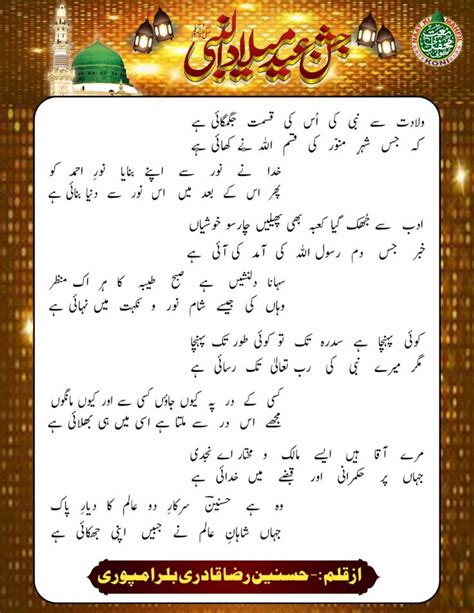 جشن عید میلاد النبی
KONI
ولادت سے نبی کی اُس کی قسمت جگمگائی ہے
کہ جس شہر منوّر کی قسم اللہ نے کھائی ہے
خدا نے نور سے اپنے بنایا نورِ احمد کو
پھر اس کے بعد میں اس نور سے دنیا بنائی ہے
ادب سے جُھک گیا کعبہ بھی پھیلیں چارسو خوشیاں
خبر جس دم رسول اللہ کی آمد کی آئی ہے
سہانا دلنشیں ہے صبح طیبہ کا ہر اک منظر
وہاں کی جیسے شام نور و نکہت میں نہائی ہے
کوئی پہنچا ہے سدرہ تک تو کوئی طور تک پہنچا
مگر میرے نبی کی رب تعالیٰ تک رسائی ہے
کسی کے در پہ کیوں جاؤں کسی سے اور کیوں مانگوں
مجھے اس در سے ملتا ہے اسی میں ہی بھلائی ہے
مرے آقا ہیں ایسے مالک و مختار اے نجدی
جہاں پر حکمرانی اور قبضے میں خدائی ہے
وہ ہے حسنینؔ سرکارِ دو عالم کا دیارِ پاک
جہاں شاہانِ عالم نے جبیں اپنی جھکائی ہے
ازقلم:- حسنین رضا قادری بلرامپوری